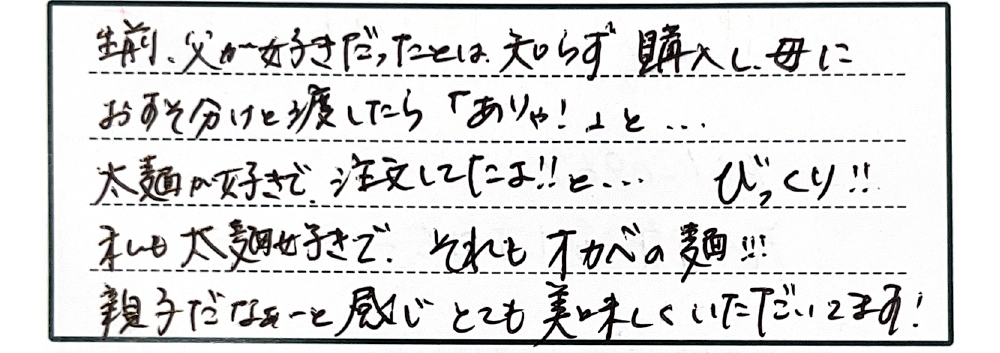 生前、父が好きだったとは知らず購入し、母に
おすそ分けと渡したら「ありゃ！」と…
太麺が好きで、注文してたよ!!と… びっくり!!
私も太麺好きで、それもオカベの麺!!!
親子だなぁーと感じとても美味しくいただいてます！